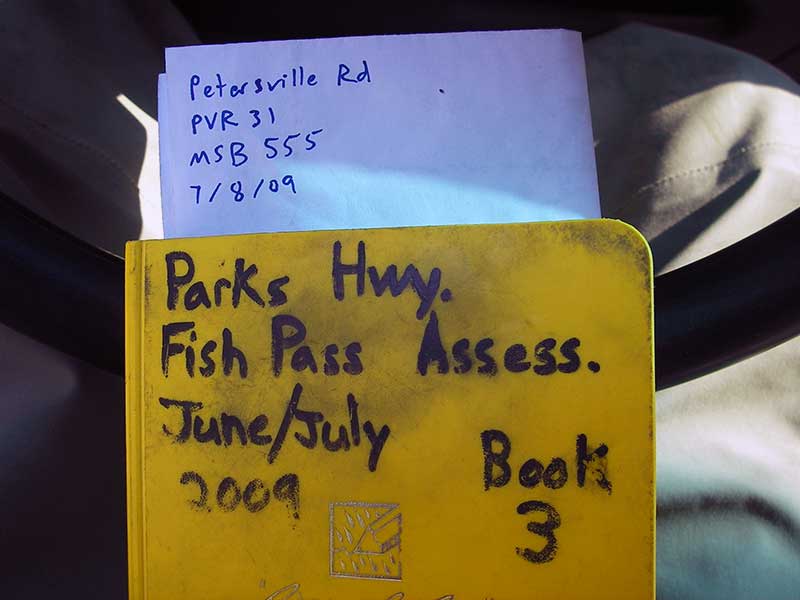 Petersville Rd
PVR 31
MSB 555
7/8/09
Parks Hwy.
Fish Pass Assess.
June/July
2009
Book
3